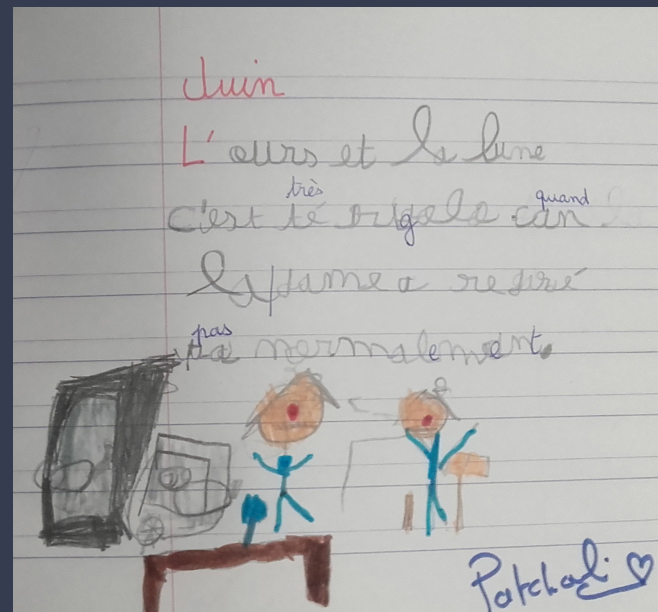 Juin
L'ours et la lune
très quand
c'est té rigolo can
la dame a respiré
pas
pa normalement.
Patchali